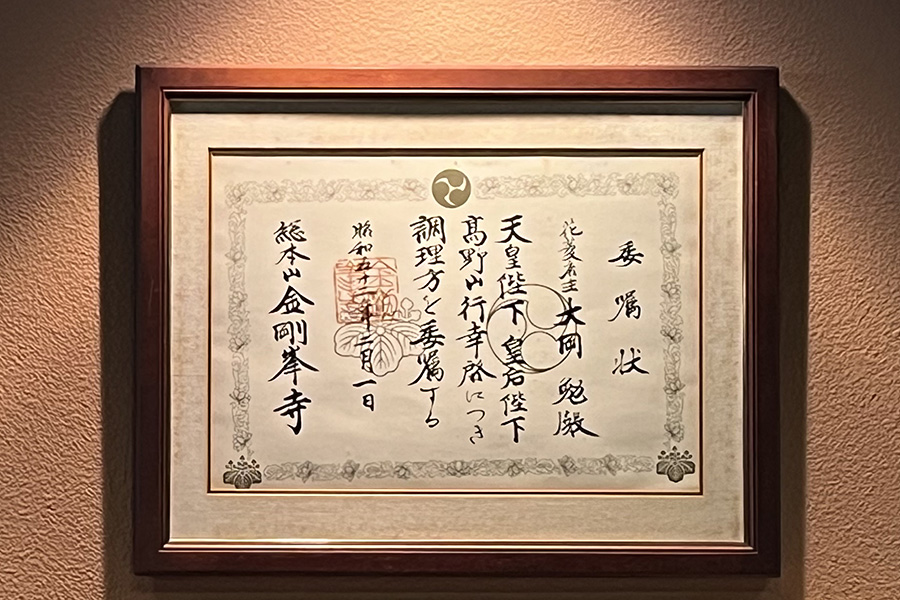 委嘱状
花菱店主 大岡 勉殿
天皇陛下 皇后陛下
髙野山行幸啓につき
調理方を委嘱する
昭和五十二年三月一日
総本山金剛峯寺